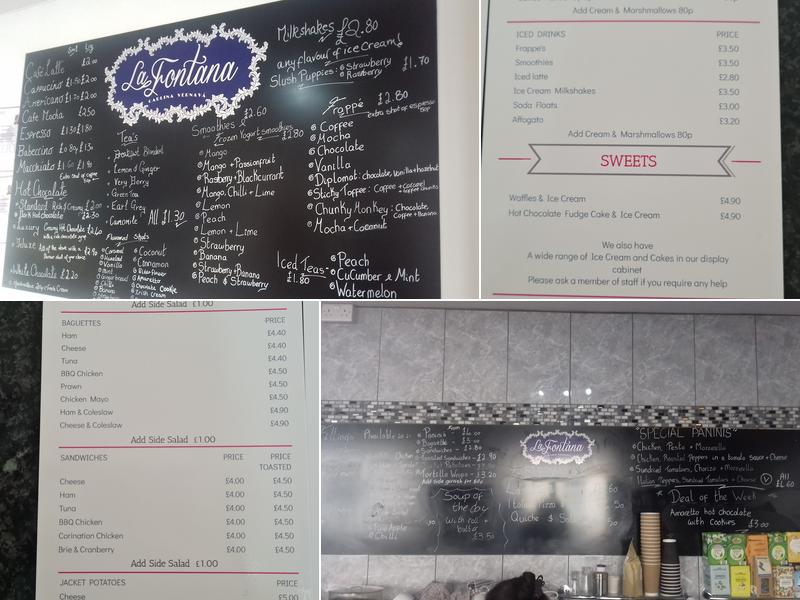 Sml Lrg
Café Latte £2.00
Cappucino £1.50 £2.00
Americano £1.70 £2.00
Café Mocha £2.50
Espresso £1.30 £1.80
Babeccino 80p £1.30
Macchiato £1.60 £1.90
Extra Shot of coffee 50p
Hot Chocolate
Standard Rich & Creamy £2.00
Dark Hot chocolate £2.30
Luxury Creamy Hot Chocolate £2.60
Deluxe
White Chocolate £2.20
La Fontana
CAFFINA VERNAVÁ
Tea's
Breakfast Blended
Lemon & Ginger
Very Berry
Green Tea
Earl Grey
Camomile
All £1.30
Flavoured Shots
Caramel
Hazelnut
Vanilla
Mint
Gingerbread
Chilli
Banana
Coconut
Cinnamon
Elderflower
Amaretto
Chocolate Cookie
Irish Cream
Smoothies £2.60
Frozen Yogurt smoothies £2.80
Mango
Mango + Passionfruit
Raspberry + Blackcurrant
Mango, Chilli + Lime
Lemon
Peach
Lemon + Lime
Strawberry
Banana
Strawberry + Banana
Peach & Strawberry
Milkshakes £2.80
any flavour of ice cream!
Slush Puppies: Strawberry
Raspberry
£1.70
Frappé £2.80
extra shot of espresso 50p
Coffee
Mocha
Chocolate
Vanilla
Diplomat: chocolate, Vanilla + hazelnut
Sticky Toffee: Coffee + Caramel + toffee chunks
Chunky Monkey: Chocolate, Coffee + Banana
Mocha + Coconut
Iced Teas £1.80
Peach
Cucumber & Mint
Watermelon
Add Cream & Marshmallows 80p
ICED DRINKS PRICE
Frappe's £3.50
Smoothies £3.50
Iced latte £2.80
Ice Cream Milkshakes £3.50
Soda Floats £3.00
Affogato £3.20
Add Cream & Marshmallows 80p
SWEETS
Waffles & Ice Cream £4.90
Hot Chocolate Fudge Cake & Ice Cream £4.90
We also have
A wide range of Ice Cream and Cakes in our display
cabinet
Please ask a member of staff if you require any help
Add Side Salad £1.00
BAGUETTES PRICE
Ham £4.40
Cheese £4.40
Tuna £4.40
BBQ Chicken £4.50
Prawn £4.50
Chicken Mayo £4.50
Ham & Coleslaw £4.90
Cheese & Colcslaw £4.90
Add Side Salad £1.00
SANDWICHES PRICE PRICE
TOASTED
Cheese £4.00 £4.50
Ham £4.00 £4.50
Tuna £4.00 £4.50
BBQ Chicken £4.00 £4.50
Corination Chicken £4.00 £4.50
Brie & Cranberry £4.00 £4.50
Add Side Salad £1.00
JACKET POTATOES PRICE
Cheese £5.00
Fillings Available
Panini's
Baguette
Sandwiches
Toasted Sandwiches £2.90
Tortilla Wraps £3.20
Add side garnish for 60p
Soup of
the day
with roll +
butter
£3.50
La Fontana
Italian Pizza
Quiche & Salad
"SPECIAL PANINIS"
Chicken, Pesto + Mozzarella
Chicken, Roasted Peppers in a tomato Sauce + Cheese
Sundried Tomatoes, Chorizo + Mozzarella
Italian Peppers, Sundried Tomatoes + Cheese V
All £4.60
Deal of the Week
Amaretto hot chocolate
with Cookies £3.00